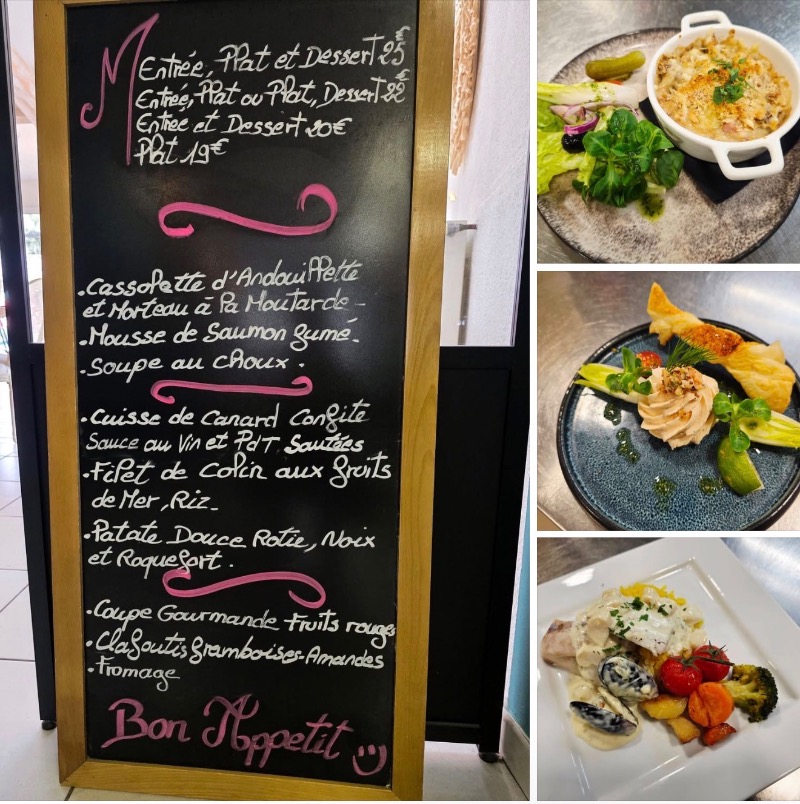 M
Entrée, Plat et Dessert 25€
Entrée, Plat ou Plat, Dessert 22€
Entrée et Dessert 20€
Plat 19€
.Cassolette d'Andouillette
et Morteau à la Moutarde-
.Mousse de Saumon fumé.
.Soupe au choux.
.Cuisse de Canard Confite
Sauce au Vin et PdT Sautées
.Filet de Colin aux fruits
de Mer, Riz_
.Patate Douce Rotie, Noix
et Roquefort.
.Coupe Gourmande Fruits rouges
.Clafoutis framboises-Amandes
.Fromage
Bon Appetit